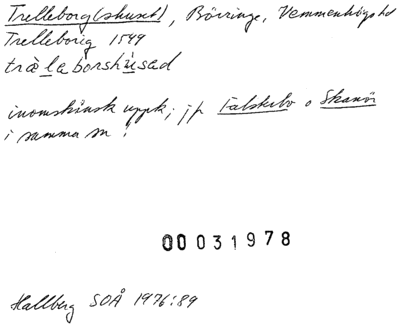 Trelleborg (shuset), Börringe, Vemmenhögs hd
Trelleborig 1549
trælaborshúsad
inomskånsk uppk; jfr Falsterbo o Skanör
i samma sn!
00031978
Hallberg SOÅ 1976:89